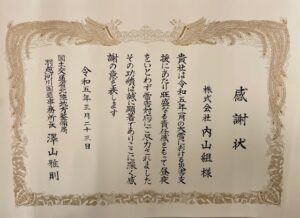 感謝状
株式会社 内山組 様
貴社は令和五年一月の大雪における支
援にあたり旺盛なる責任感をもって昼夜
をいとわず雪害対応に尽力されました
その功績は誠に顕著でありここに深く感
謝の意を表します
令和五年三月二十三日
国土交通省北陸地方整備局
羽越河川国道事務所長 澤山雅則